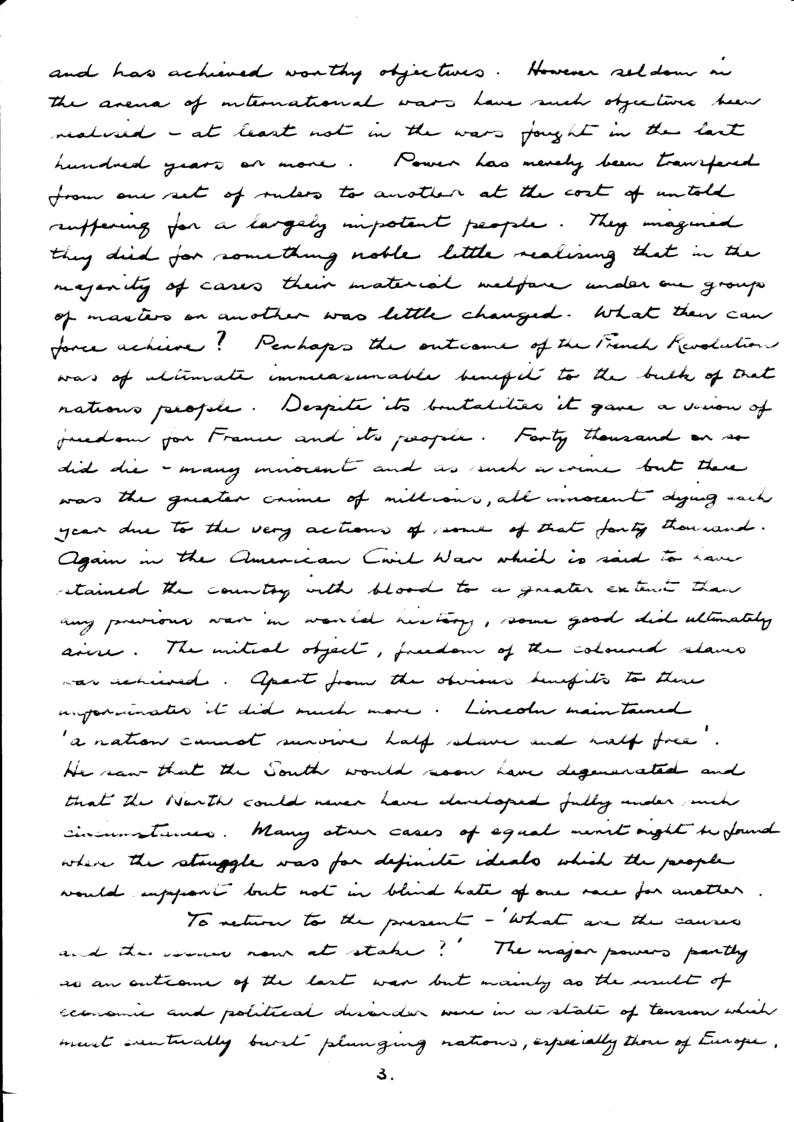 and has achieved worthy objectives. However seldom in
the arena of international wars have such objectives been
realised - at least not in the wars fought in the last
hundred years or more. Power has merely been transfered
from one set of rulers to another at the cost of untold
suffering for a largely impotent people. They imagined
they died for something noble little realising that in the
majority of cases their material welfare under one group
of masters or another was little changed. What then can
force achieve? Perhaps the outcome of the French Revolution
was of ultimate immeasurable benefit to the bulk of that
nations people. Despite its brutalities it gave a vision of
freedom for France and its people. Forty thousand or so
did die - many innocent and as such a crime but there
was the greater crime of millions, all innocent dying each
year due to the very actions of some of that forty thousand.
Again in the American Civil War which is said to have
stained the country with blood to a greater extent than
any previous war in world history, some good did ultimately
arise. The initial object, freedom of the coloured slaves
was achieved. Apart from the obvious benefits to these
unfortunates it did much more. Lincoln maintained
'a nation cannot survive half slave and half free'.
He saw that the South would soon have degenerated and
that the North could never have developed fully under such
circumstances. Many other cases of equal merit might be found
where the struggle was for definite ideals which the people
would support but not in blind hate of one race for another.
To return to the present - 'What are the causes
and the issues now at stake?' The major powers partly
as an outcome of the last war but mainly as the result of
economic and political disorder were in a state of tension which
must eventually burst plunging nations, especially those of Europe,
3.